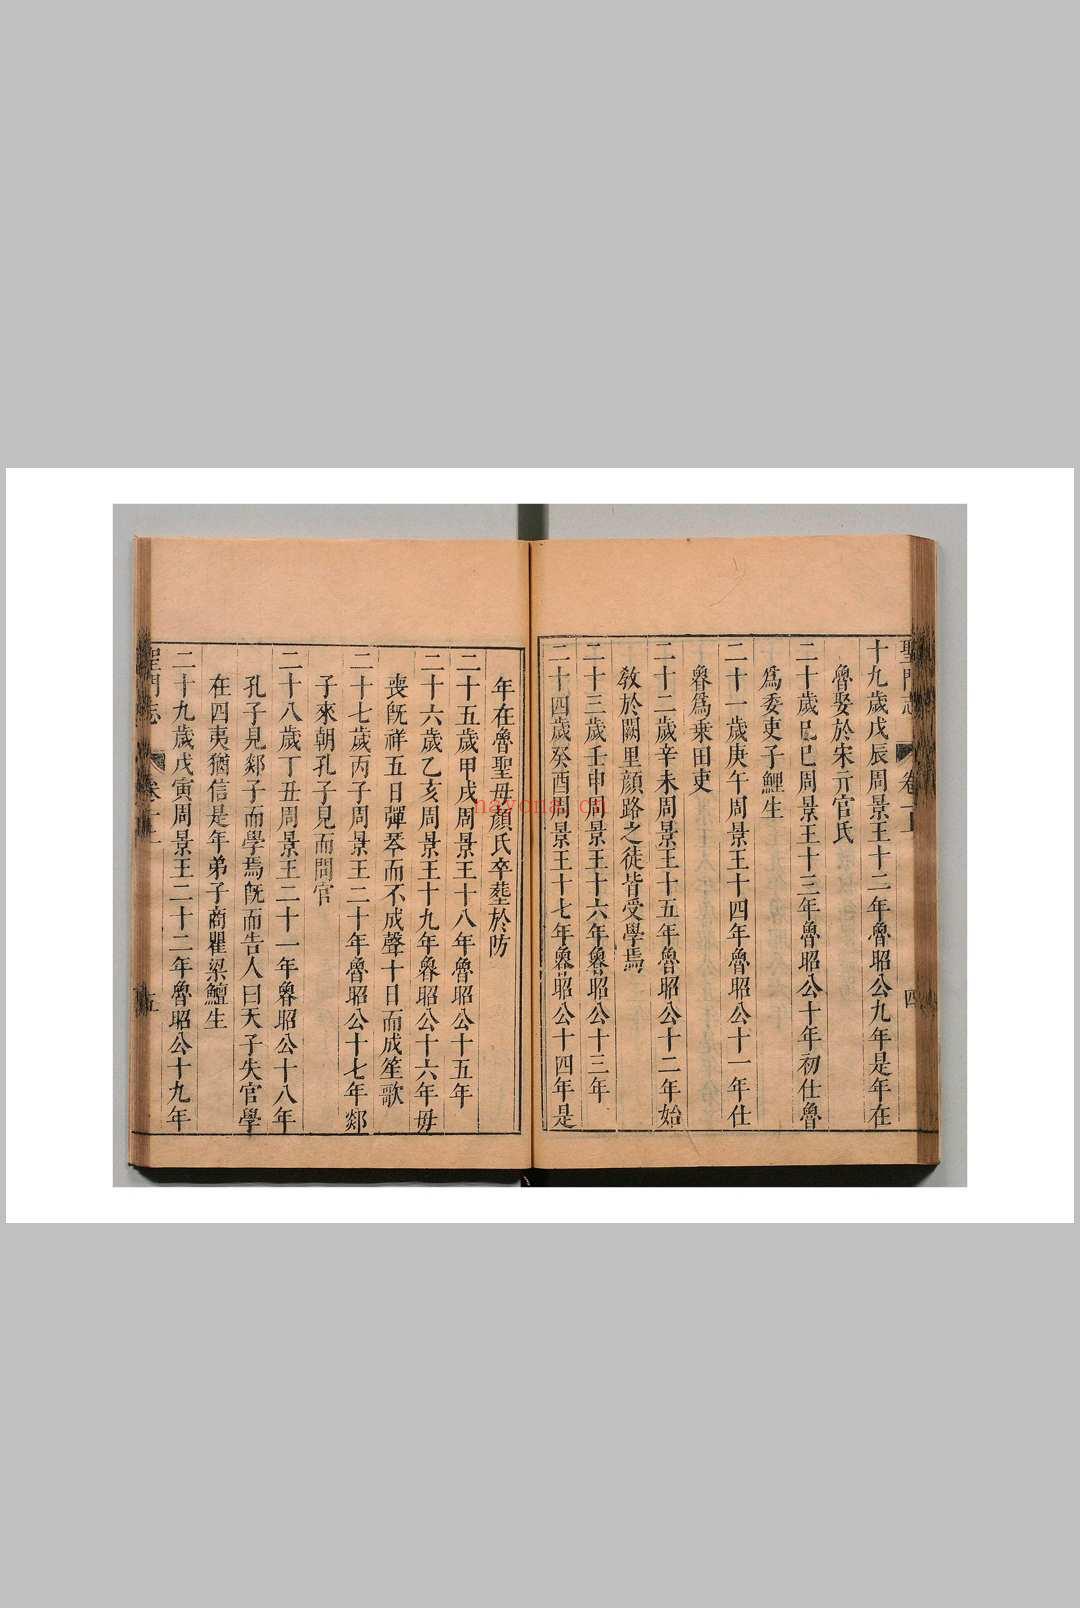 聖門志 卷一上 四
十九歲戊辰周景王十二年魯昭公九年是年在
魯娶於宋亓官氏
二十歲己巳周景王十三年魯昭公十年初仕魯
爲委吏子鯉生
二十一歲庚午周景王十四年魯昭公十一年仕
魯爲乗田吏
二十二歲辛未周景王十五年魯昭公十二年始
敎於闕里顔路之徒皆受學焉
二十三歲壬申周景王十六年魯昭公十三年
二十四歲癸酉周景王十七年魯昭公十四年是
年在魯聖母顔氏卒塟於防
二十五歲甲戌周景王十八年魯昭公十五年
二十六歲乙亥周景王十九年魯昭公十六年毋
喪旣祥五日彈琴而不成聲十日而成笙歌
二十七歲丙子周景王二十年魯昭公十七年郯
子來朝孔子見而問官
二十八歲丁丑周景王二十一年魯昭公十八年
孔子見郯子而學焉旣而告人曰天子失官學
在四夷猶信是年弟子商瞿梁鱣生
二十九歲戊寅周景王二十二年魯昭公十九年
聖門志 卷 五
nayona.cn